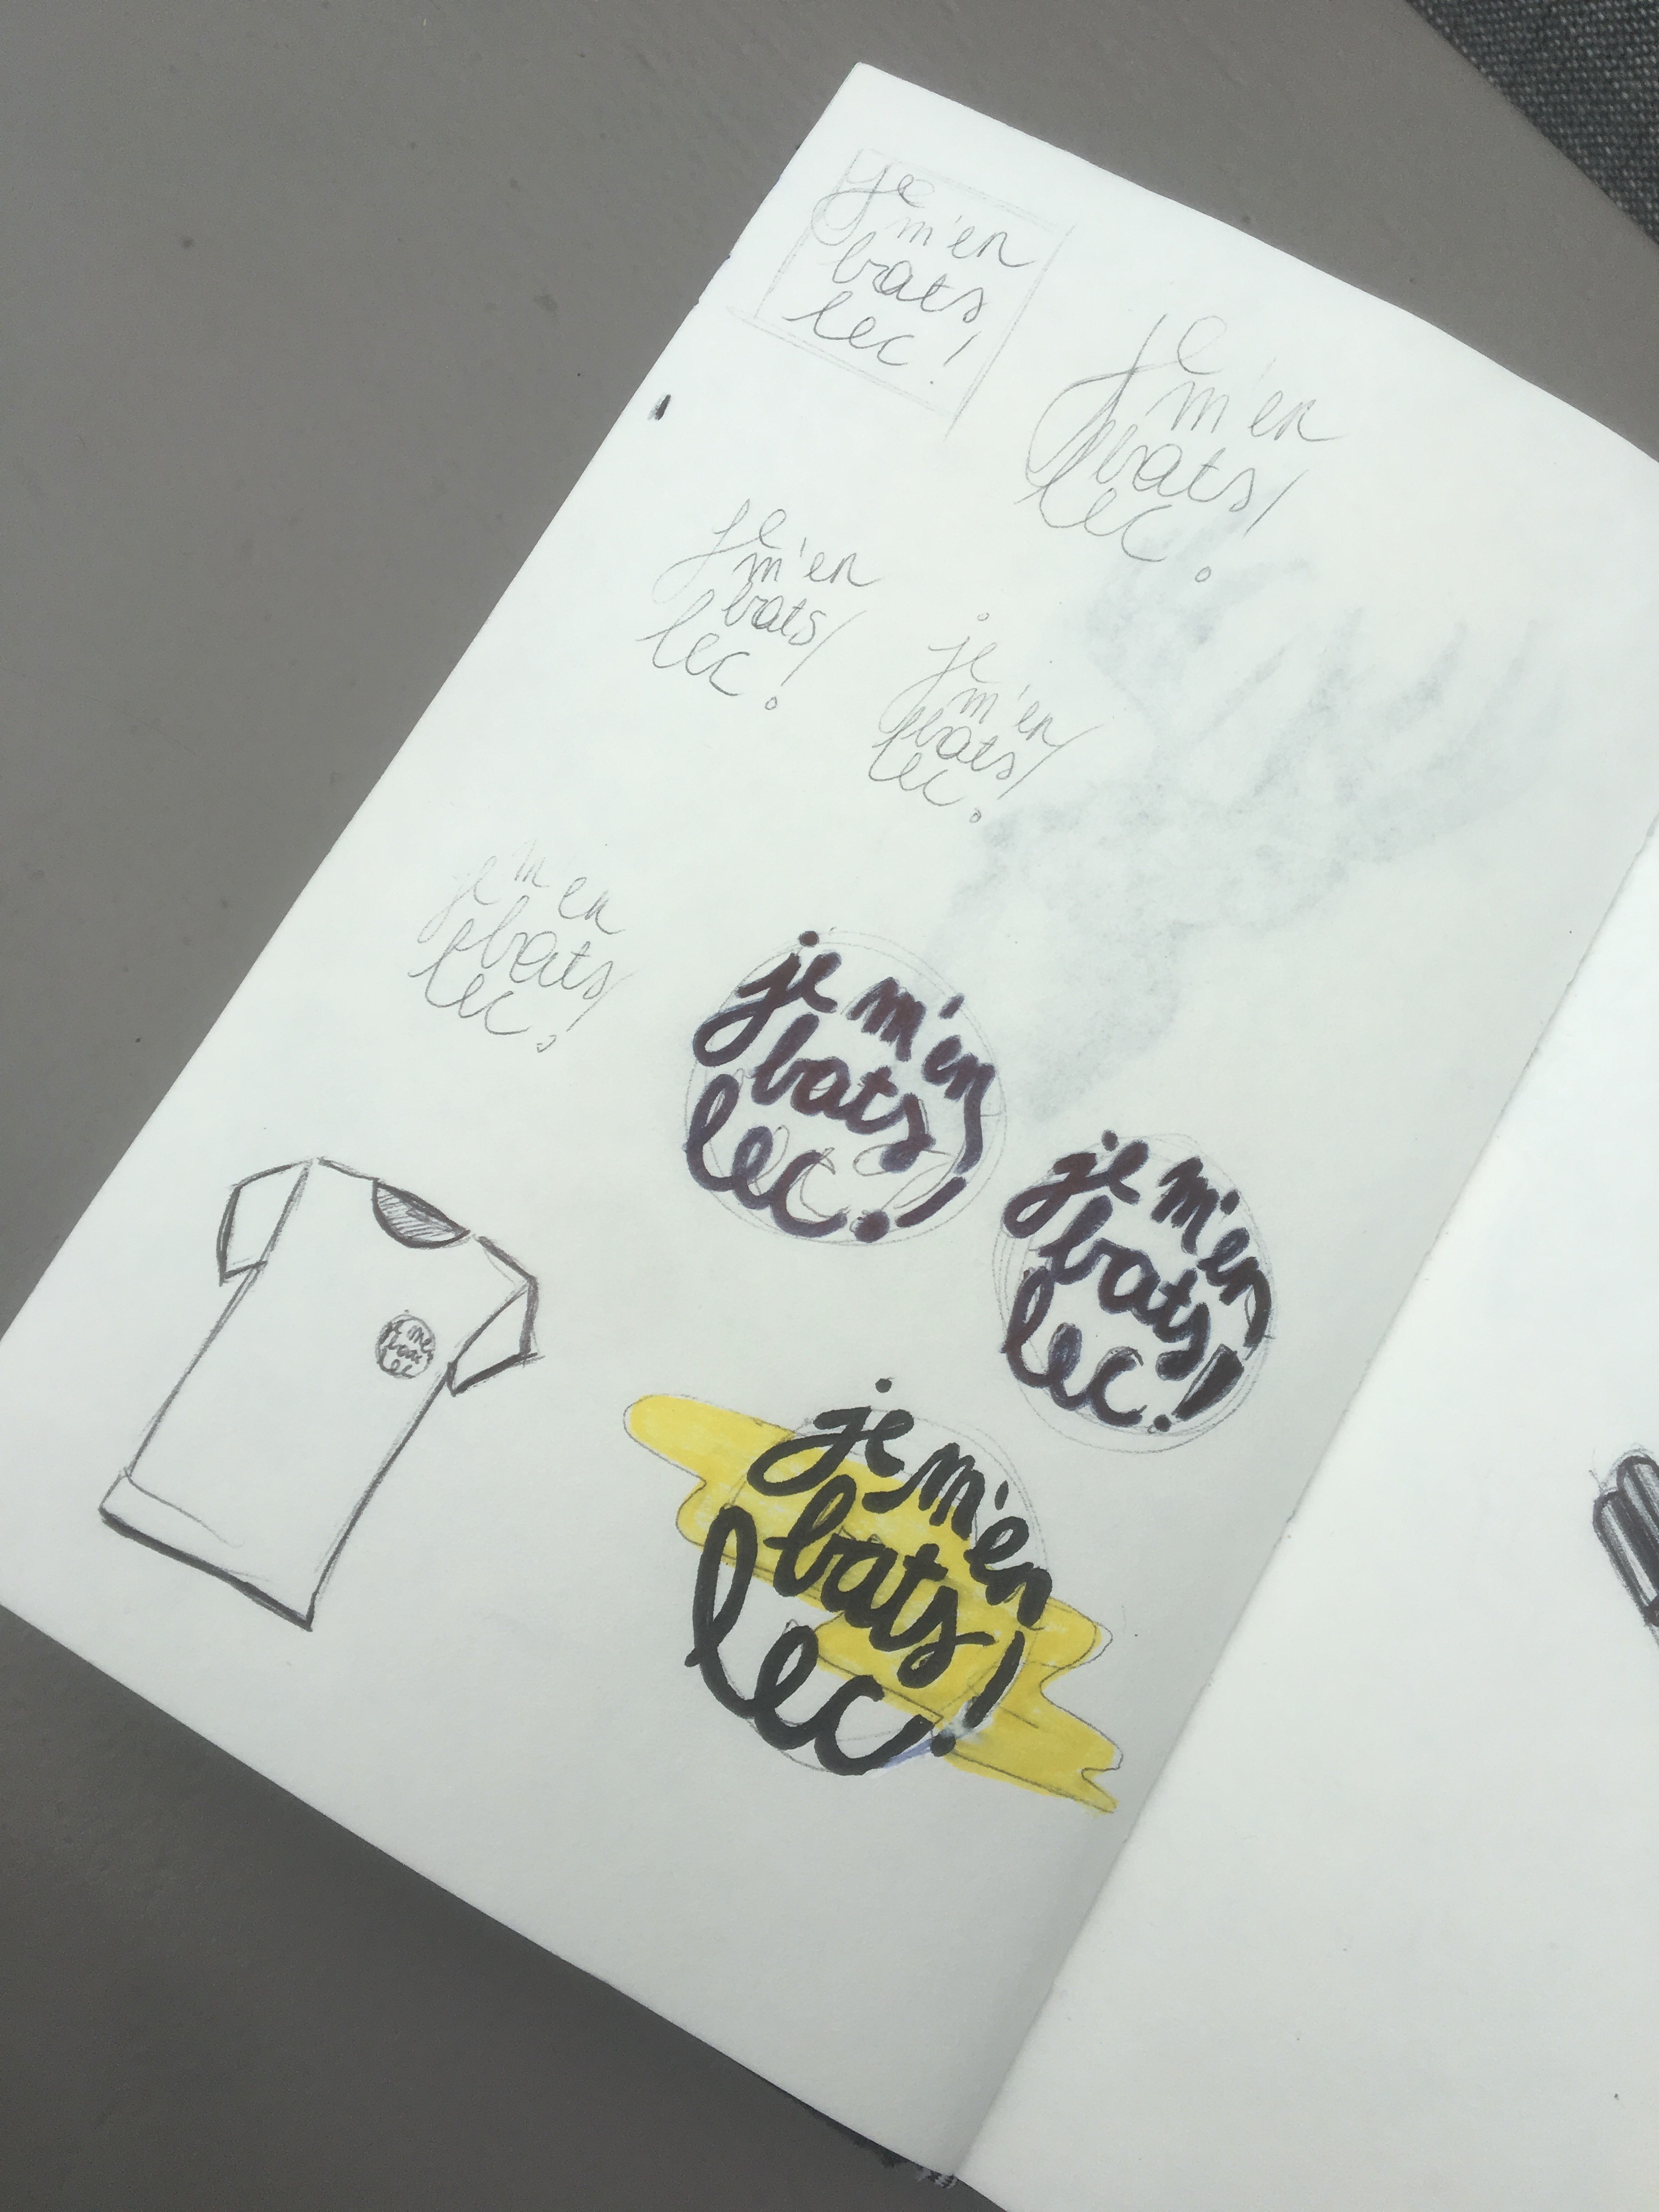 je
m'en
bats
lec !
je
m'en
bats
lec !
je
m'en
bats
lec !
je
m'en
bats
lec !
je m'en
bats
lec !
je m'en
bats
lec !
je m'en
bats
lec !
je m'en
bats
lec
je m'en
bats
lec !